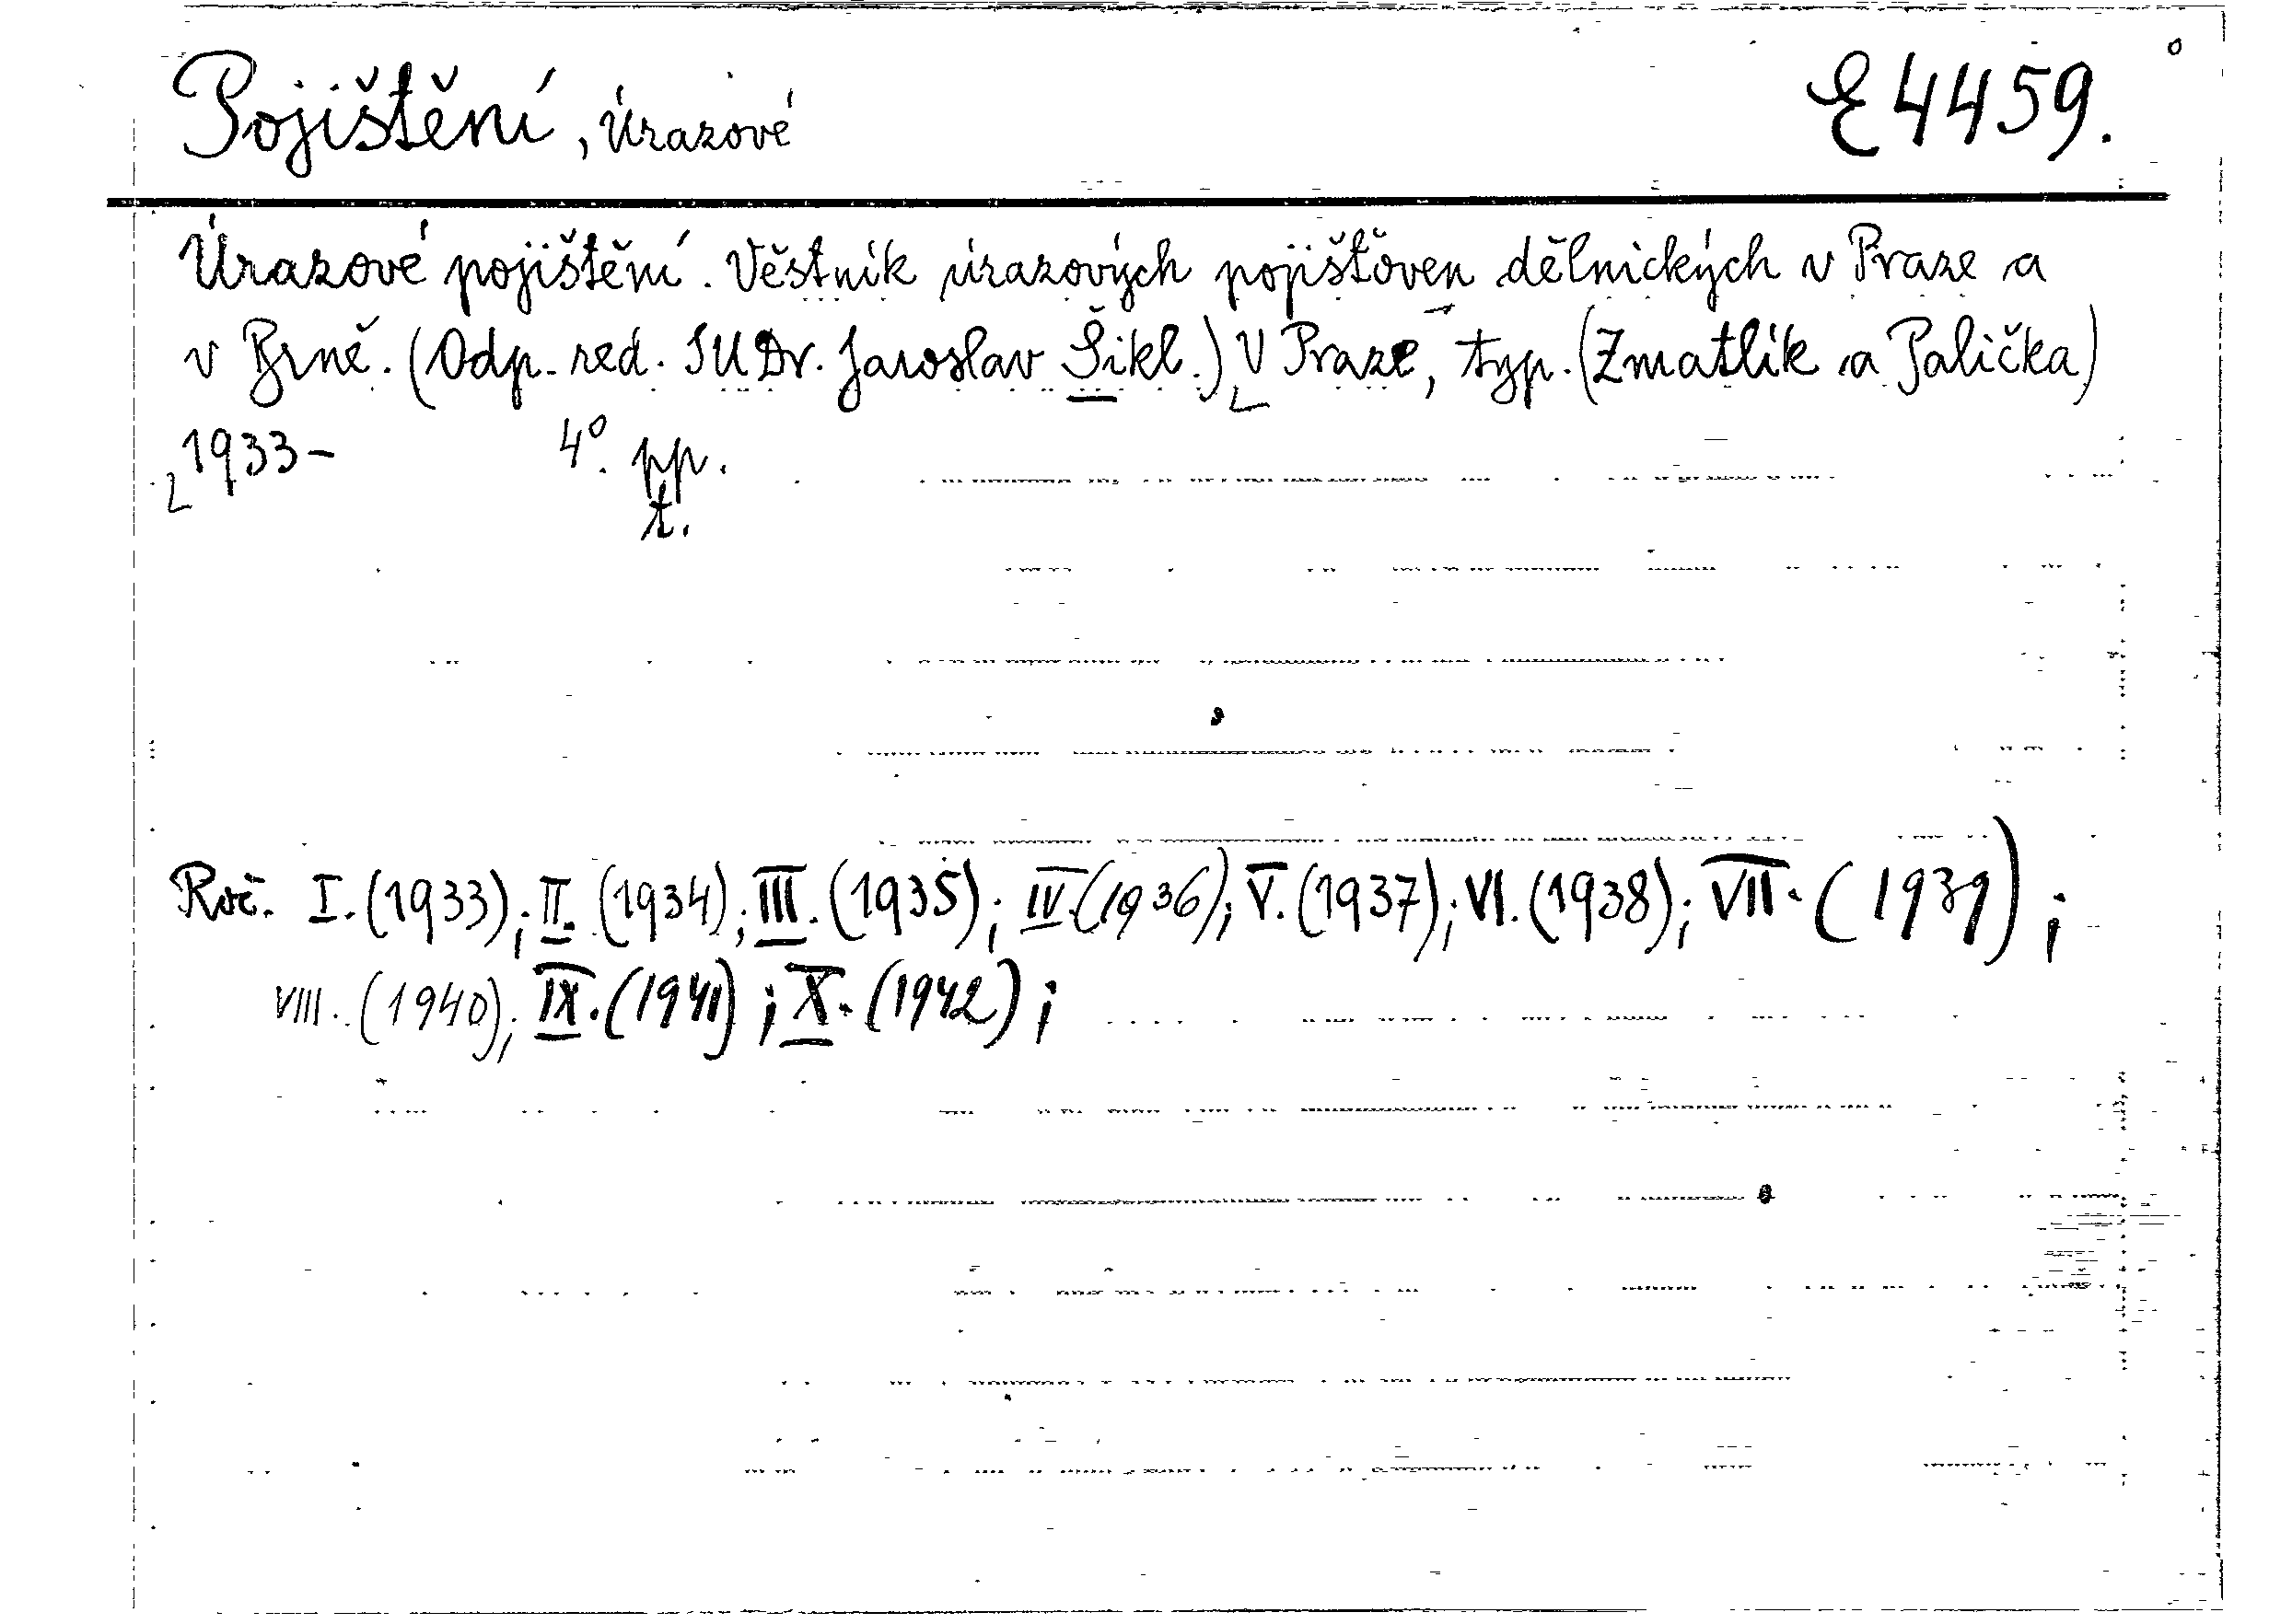 Pojištění, Úrazové E 4459.
Úrazové pojištění. Věstník úrazových pojišťoven dělnických v Praze a
v Brně. (Odp. red. JUDr. Jaroslav Šikl.) V Praze, typ. (Zmatlík a Palička)
1933- 4°. pp.
t.
Roč. I. (1933); II. (1934); III. (1935); IV. (1936); V. (1937); VI. (1938); VII. (1939);
VIII. (1940); IX. (1941); X. (1942);